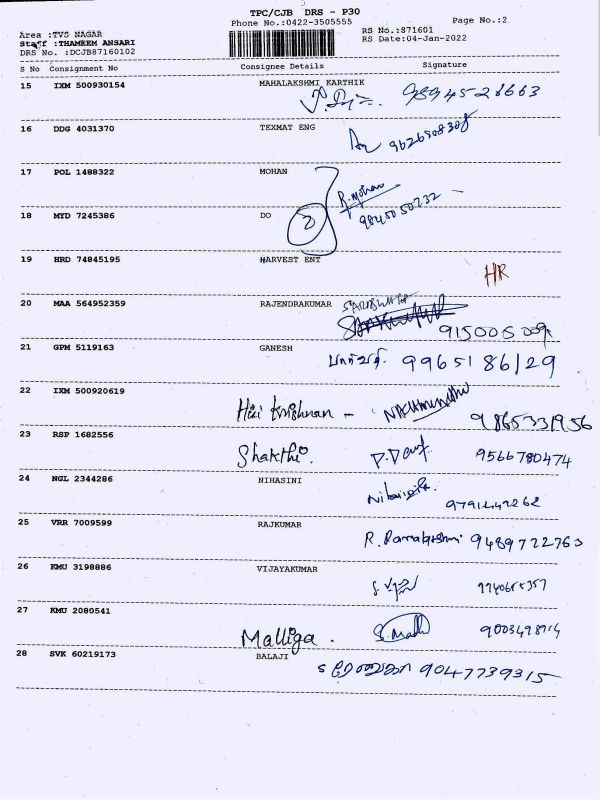 TPC/CJB DRS - P30
Phone No.:0422-3505555 Page No.:2
Area :TVS NAGAR RS No.:871601
Staff :THAMEEM ANSARI RS Date:04-Jan-2022
DRS No. :DCJB87160102
S No Consignment No Consignee Details Signature
15 IXM 500930154 MAHALAKSHMI KARTHIK
16 DDG 4031370 TEXMAT ENG
9626508308
17 POL 1488322 MOHAN
R. Mohan
2
18 MYD 7245386 DO
9845050232
19 HRD 74845195 HARVEST ENT
HR
20 MAA 564952359 RAJENDRAKUMAR
21 GPM 5119163 GANESH
9965186129
22 IXM 500920619
Hari Krishnan - 9865331956
23 RSP 1682556
Shakthi. 9566780474
24 NGL 2344286 NIHASINI
25 VRR 7009599 RAJKUMAR
9489722763
26 KMU 3198886 VIJAYAKUMAR
27 KMU 2080541
Malliga.
28 SVK 60219173 BALAJI
9047739315